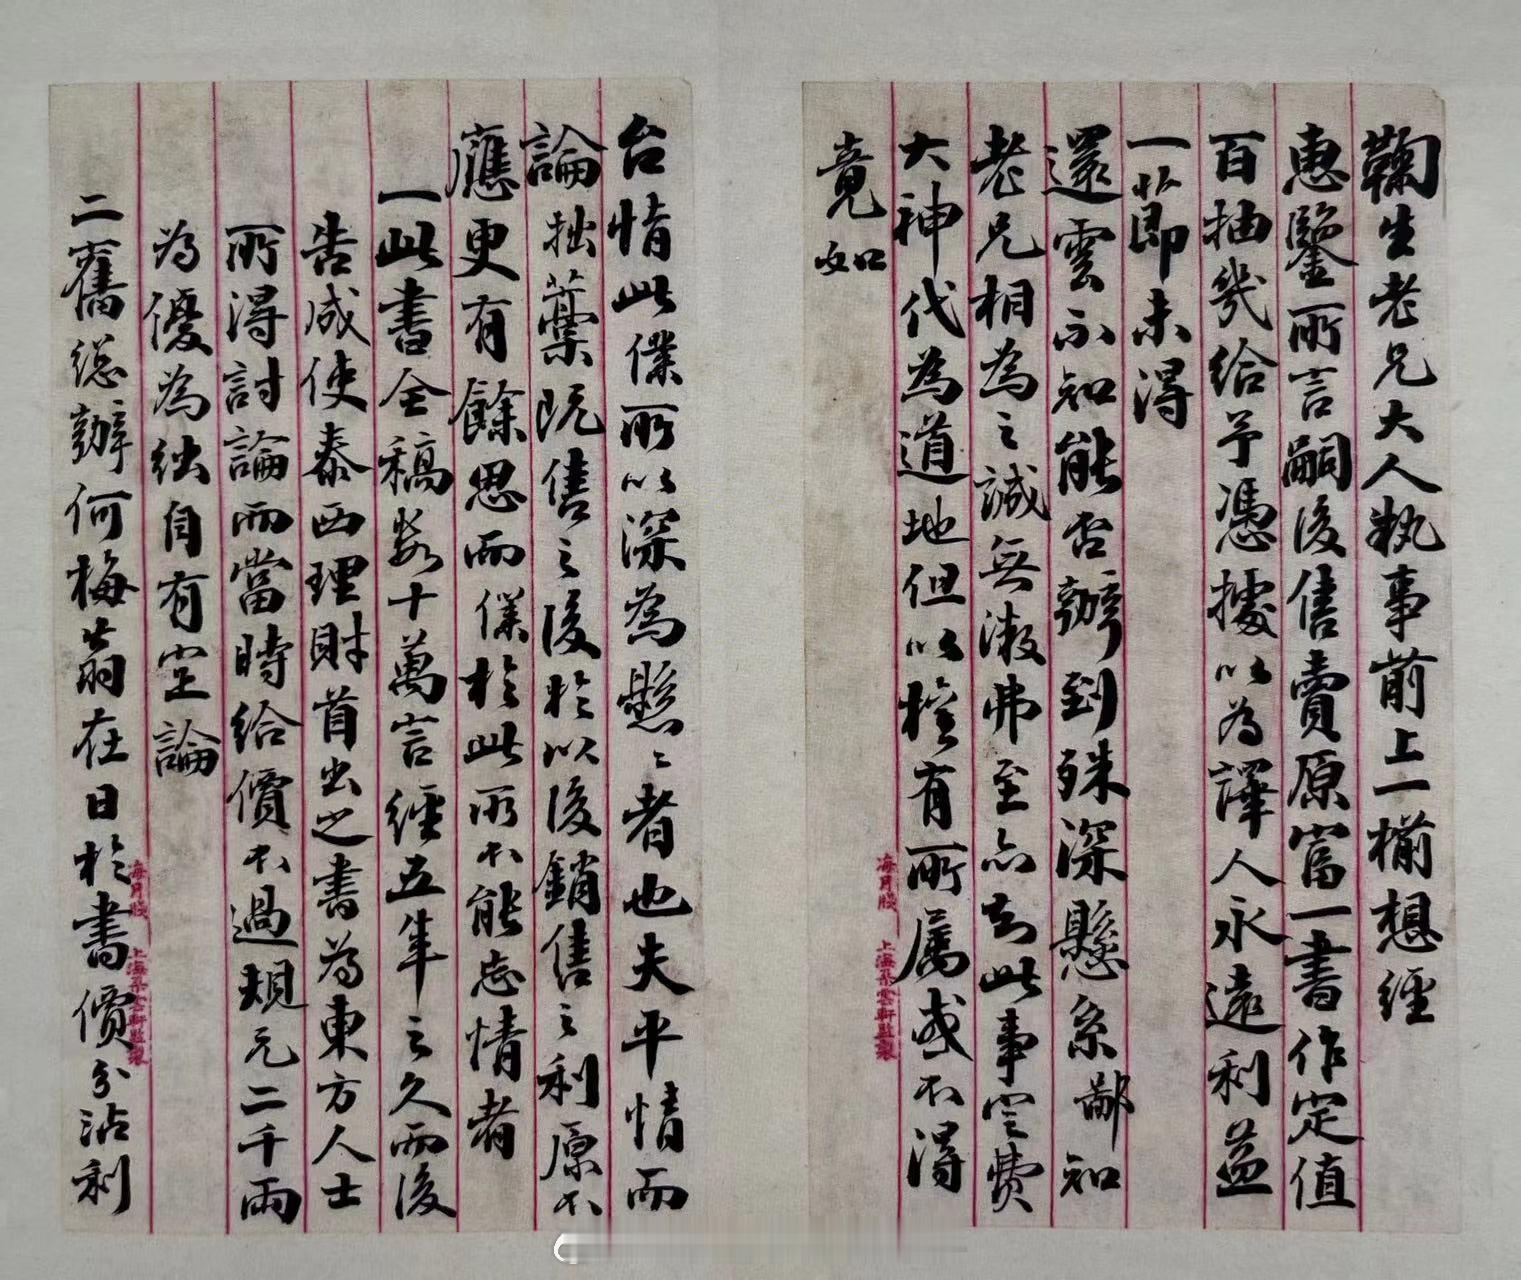 鞠生老兄大人執事前上一械想經
惠鑒所言嗣後售賣原富一書作定值
百抽幾給予憑據以為譯人永遠利益
一節未得
還雲不知能否辦到殊深懸系鄙知
老兄相為之誠無激弗至亦知此事定費
大神代為道地但以權有所屬或不得
竟如
台情此僕所以深為懸〻者也夫平情而
論拙藁既售之後於以後銷售之利原不
應更有餘思而僕於此所不能忘情者
一此書全稿數十萬言經五年之久而後
告成使泰西理財首出之書為東方人士
所得討論而當時給價不過規元二千兩
為優為絀自有定論
二舊總辦何梅翁在日於書價分沾利
海月牋 上海朵雲軒監製
海月牋 上海朵雲軒監製